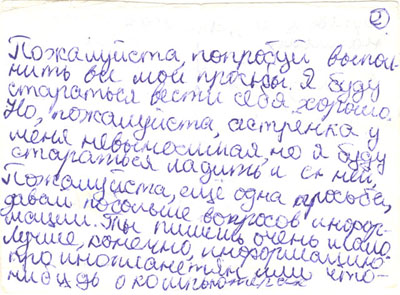 2
Пожалуйста, попробуй выпол-
нить вы мои просьбы. Я буду
стараться вести себя хорошо.
Но, пожалуйста, сестрёнка у
меня невыносимая, но я буду
стараться ладить и с ней.
Пожалуйста, ещё одна просьба,
давай побольше вопросов и инфор-
мации. Ты пишешь очень мало.
Лучше, конечно, информацию
про инопланетян или что-
нибудь о компьютерах